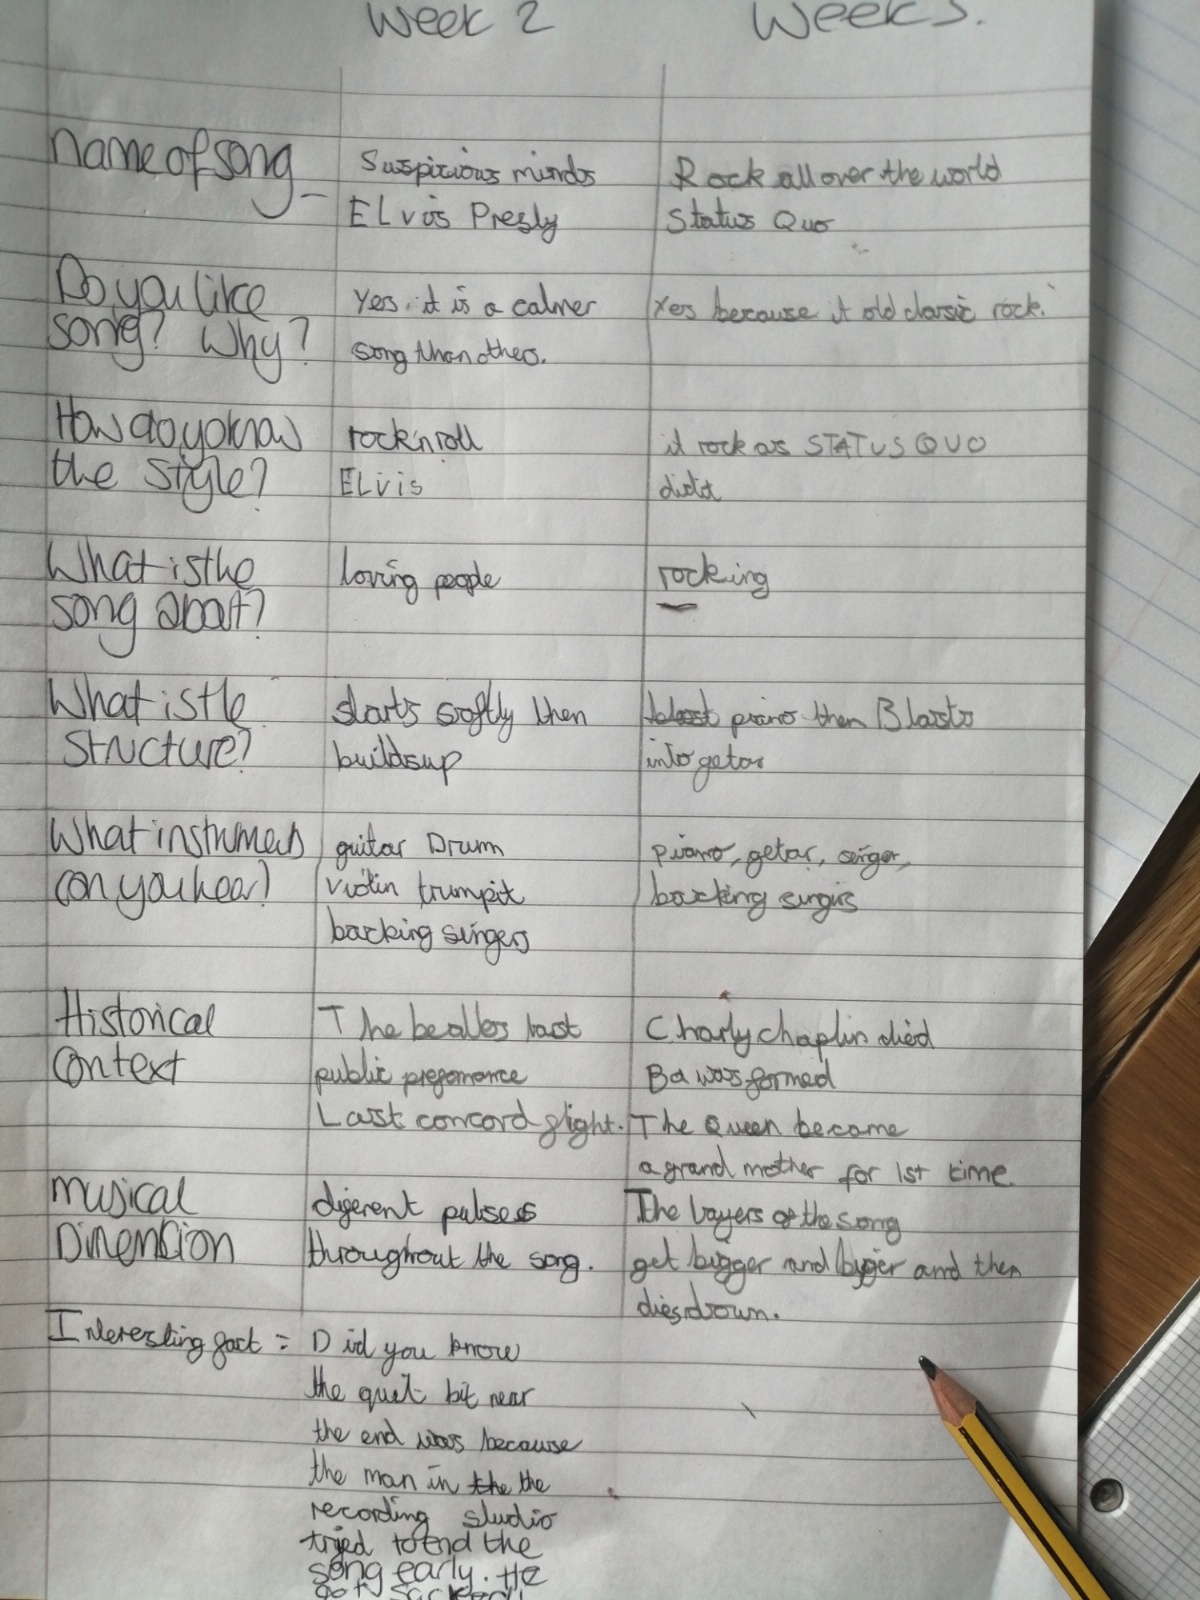 Week 2 Week 3.
name of song - Suspicious minds Rock all over the world
ELvis Presly Status Quo
Do you like Yes it is a calmer Yes because it old classic rock.
song? Why? song than othes.
How do yo know rock'n'roll it rock as STATUS QUO
the style? ELvis did it
What is the loving people rocking
song about?
What is the starts softly then piano then Blasts
structure? buildsup into getar
What instrumens guitar Drum piano, getar, singer,
can you hear? violin trumpit backing singirs
backing singers
Historical The beatles last Charly chaplin died
context public prefomance Ba was formed
Last concord flight. The Queen became
a grand mother for 1st time.
musical diferent pulses The layers of the song
Dimension throughout the song. get bigger and bigger and then
dies down.
Interesting fact = Did you know
the quet bit near
the end was because
the man in the the
recording studio
tried to end the
song early. He
got sacked!